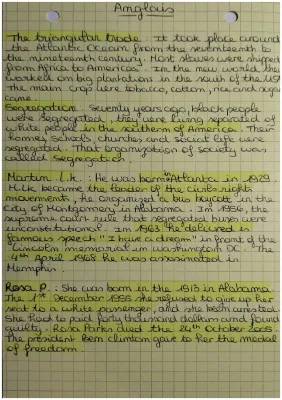 Anglais
The triangular trade : It took place around
the Atlantic Ocean from the seventeenth to
the nineteenth century. Most slaves were shipped
from Africa to America. In the new world, they
worked on big plantations in the south of the USA
The main crop were tobacco, cotton, rice and sugar
cane.
Segregation : Seventy years ago, black people
were segregated, they were living separated of
white people in the southern of America. Their
homes, schools, churches and social life were
segregated. That organisation of society was
called segregation.
Martin l.k. : He was born Atlanta in 1929.
M.l.k became the leader of the civil rights
movement, he organised a bus boycott in the
city of Montgomery in Alabama. In 1956, the
supreme court rule that segregated buses were
unconstitutional. In 1963 he delivered is
famous speech "I have a dream" in front of the
Lincoln memorial in Washington DC. The
4th April 1968 he was assasinated in
Memphis.
Rosa P. : She was born in the 1913 in Alabama.
The 1st December 1955 she refused to give up her
seat to a white passenger, and she been arrested.
She had to paid forty thousand dollars and found
guilty. Rosa Parks died the 24th October 2005.
The president Ben Clinton gave to her the medal
of freedom.